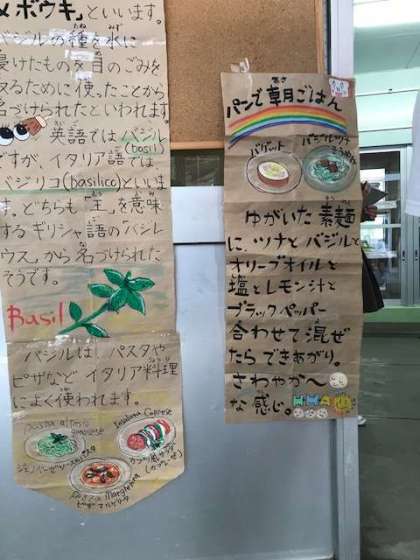 メボウキ」といいます。
バジルの種を水に
浸けたものを目のごみを
取るために使ったことから
名づけられたといわれます
英語ではバジル
(basil)
ですが、イタリア語では
バジリコ(basilico)といいま
す。どちらも「王」を意味
するギリシャ語の「バシレ
ウス」から名づけられた
そうです。
Basil
バジルは、パスタや
ピザなどイタリア料理
によく使われます。
Insalata Caprese
genovese
Pizza Margherita
ピザ マルゲリータ
パンで朝ごはん
あさ
バゲット
バジルツナ
ゆがいた素麺
に、ツナとバジルと
オリーブオイルと
塩とレモン汁と
ブラックペッパー
合わせて混ぜ
たらできあがり。
さわやか〜
な感じ。